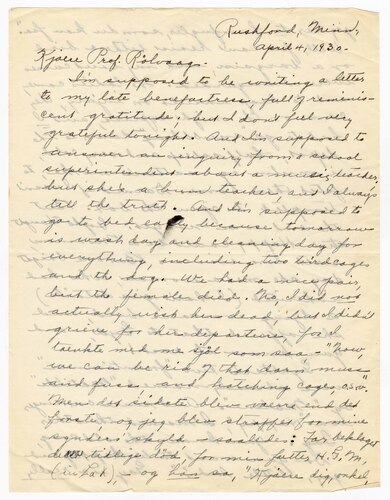 Rushford, Minn.,
April 4, 1930.
Kjære Prof. Rölvaag:
I'm supposed to be writing a letter
to my late benefactress, full of reminis-
cent gratitude. but I don't feel very
grateful tonight. And I'm supposed to
answer an inquiry from a school
superintendent about a music teacher,
but she's a bum teacher, and I always
tell the truth. And I'm supposed to
go to bed early because tomorrow
is wash day and cleaning day for
everything, including two bird cages
and the dog. We had a nice pair,
but the female died. No, I did not
actually wish her dead but I didn't
grieve for her departure, for I
tænkte med me sjöl som saa - "Now,
we can be rid of that darn muss
and fuss and hatching cages o.s.v."
Men det sidste blev værre end det
förste og jeg blev straffet for mine
synders skyld - saaledes: Far beklaget
tidligst for min fætter H. G. M.
- og han sa, "Kjære dig, onkel